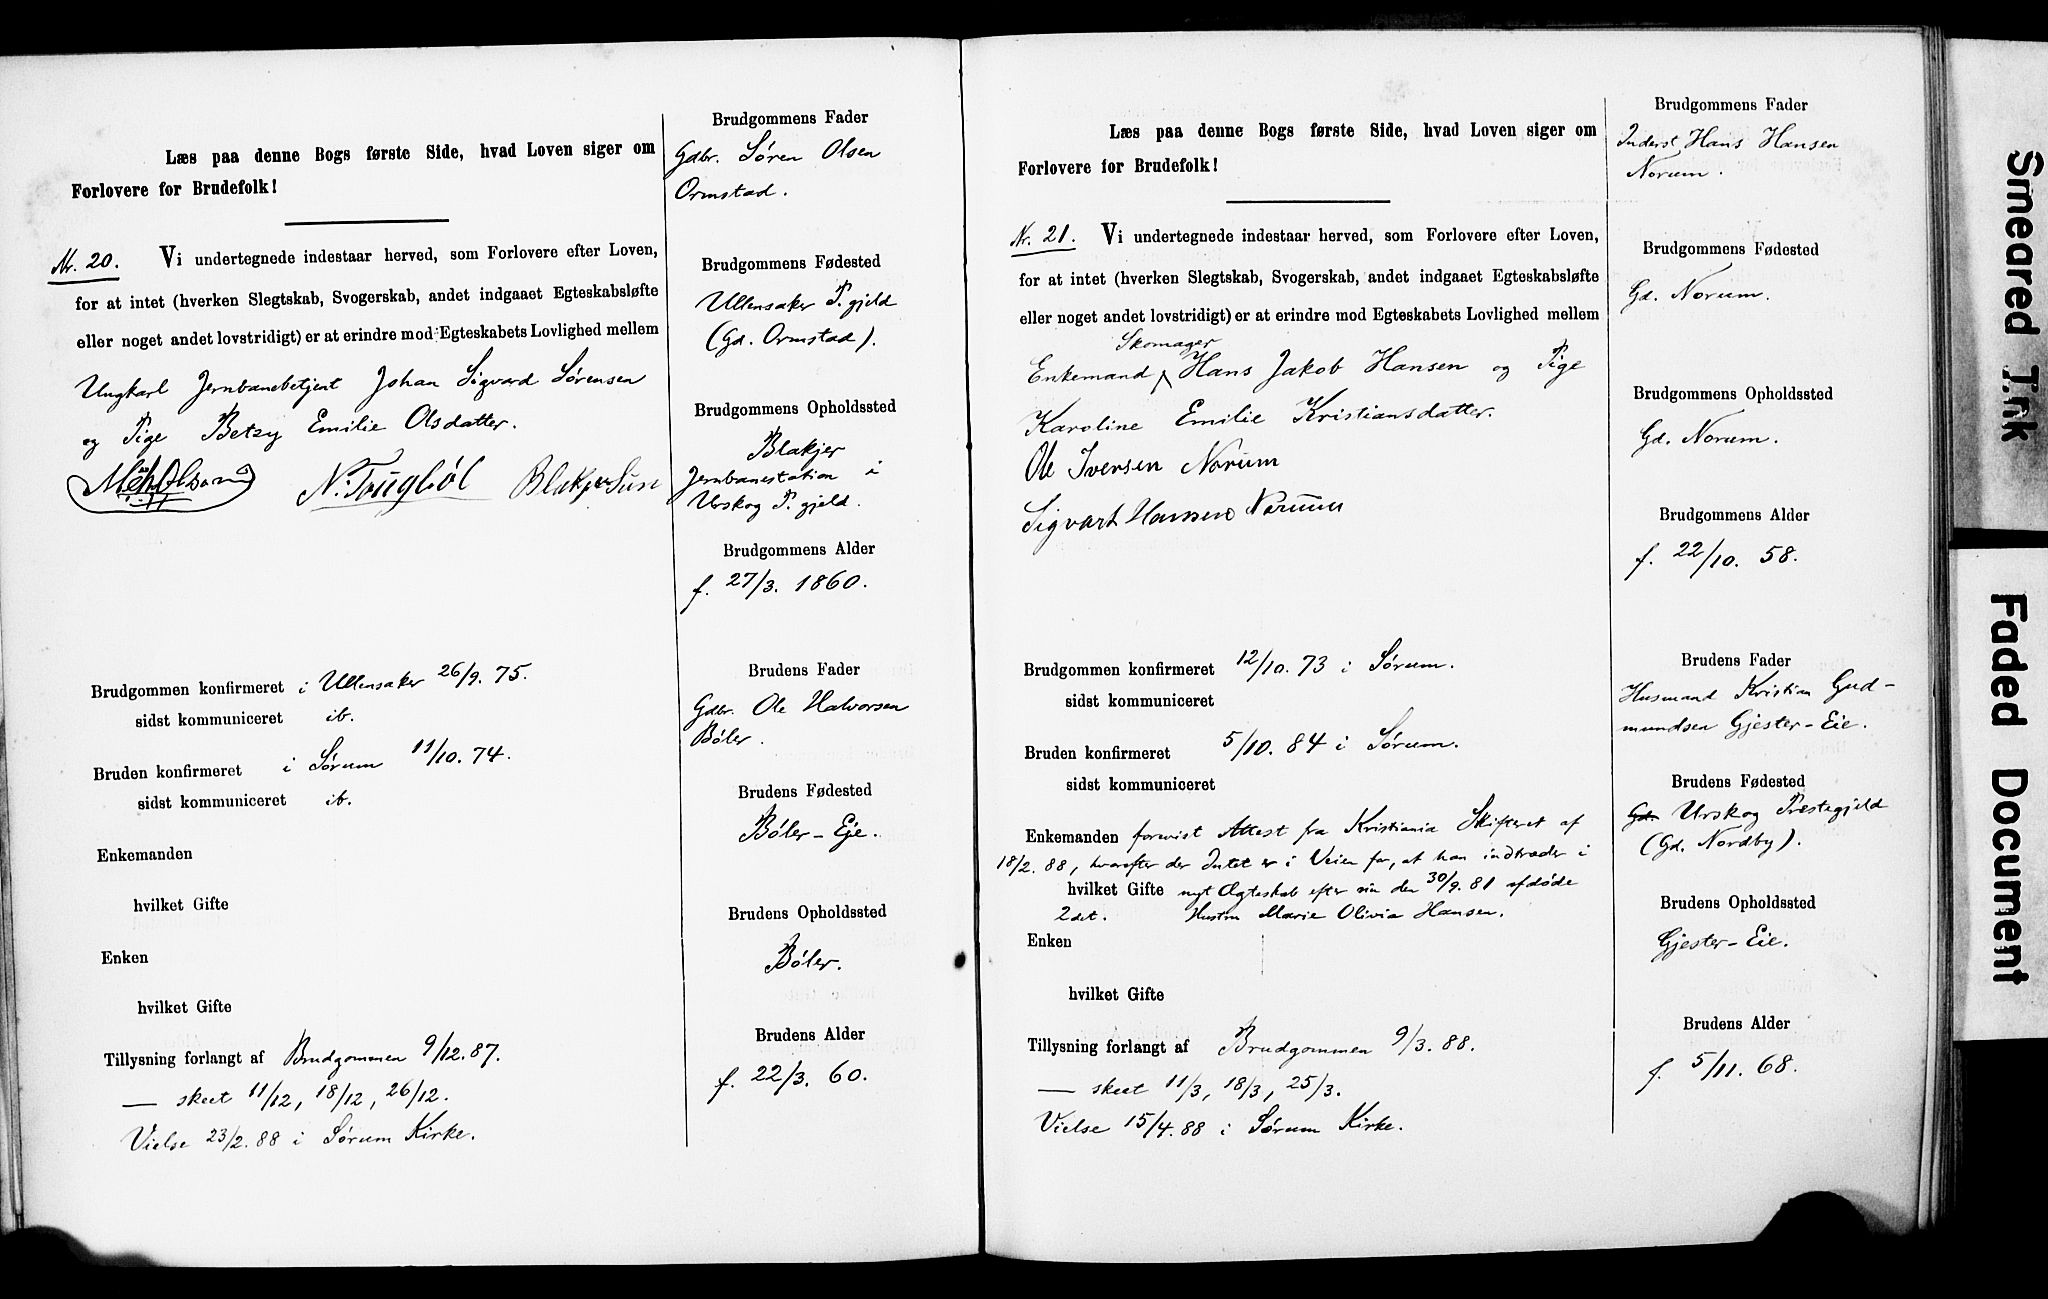 Læs paa denne Bogs første Side, hvad Loven siger om
Forlovere for Brudefolk!
Nr. 20. Vi undertegnede indestaar herved, som Forlovere efter Loven,
for at intet (hverken Slegtskab, Svogerskab, andet indgaaet Egteskabsløfte
eller noget andet lovstridigt) er at erindre mod Egteskabets Lovlighed mellem
Ungkarl Jernbanebetjent Johan Sigvard Sørensen
og Pige Betzy Emilie Olsdatter.
N. Tougbøl Blakjer
Brudgommen konfirmeret i Ullensaker 26/9. 75.
sidst kommuniceret ib.
Bruden konfirmeret i Sørum 11/10. 74.
sidst kommuniceret ib.
Enkemanden
hvilket Gifte
Enken
hvilket Gifte
Tillysning forlangt af Brudgommen 9/12. 87.
— skeet 11/12, 18/12, 26/12.
Vielse 23/2. 88 i Sørum Kirke.
Brudgommens Fader
Gdbr. Søren Olsen
Ormstad.
Brudgommens Fødested
Ullensaker P. gjeld
(Gd. Ormstad).
Brudgommens Opholdssted
Blakjer
Jernbanestation i
Urskog P. gjeld.
Brudgommens Alder
f. 27/3. 1860.
Brudens Fader
Gdbr. Ole Halvorsen
Bøler.
Brudens Fødested
Bøler-Eje.
Brudens Opholdssted
Bøler.
Brudens Alder
f. 22/3. 60.
Læs paa denne Bogs første Side, hvad Loven siger om
Forlovere for Brudefolk!
Nr. 21. Vi undertegnede indestaar herved, som Forlovere efter Loven,
for at intet (hverken Slegtskab, Svogerskab, andet indgaaet Egteskabsløfte
eller noget andet lovstridigt) er at erindre mod Egteskabets Lovlighed mellem
Skomager
Enkemand Hans Jakob Hansen og Pige
Karoline Emilie Kristiansdatter.
Ole Iversen Norum
Sigvart Hansen Norum
Brudgommen konfirmeret 12/10. 73 i Sørum.
sidst kommuniceret
Bruden konfirmeret 5/10. 84 i Sørum.
sidst kommuniceret
Enkemanden forevist Attest fra Kristiania Skifteret af
18/2. 88, hvorefter der Intet er i Veien for, at han indtræder i
hvilket Gifte nyt Ægteskab efter sin den 30/9. 81 afdøde
2det. Hustru Marie Olivia Hansen.
Enken
hvilket Gifte
Tillysning forlangt af Brudgommen 9/3. 88.
— skeet 11/3, 18/3, 25/3.
Vielse 15/4. 88 i Sørum Kirke.
Brudgommens Fader
Inderst Hans Hansen
Norum.
Brudgommens Fødested
Gd. Norum.
Brudgommens Opholdssted
Gd. Norum.
Brudgommens Alder
f. 22/10. 58.
Brudens Fader
Husmand Kristian Gud-
mundsen Gjester-Eie.
Brudens Fødested
Gd. Urskog Præstegjeld
(Gd. Nordby).
Brudens Opholdssted
Gjester-Eie.
Brudens Alder
f. 5/11. 68.
Smeared Trik
Faded Document